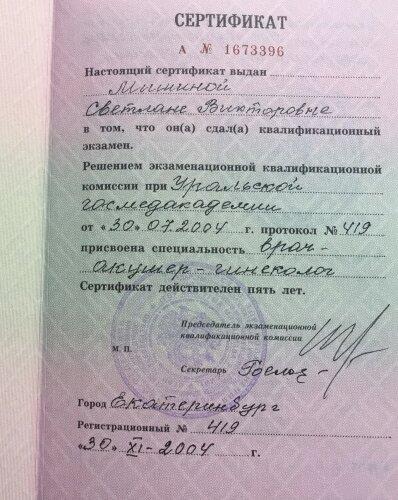 СЕРТИФИКАТ
А № 1673396
Настоящий сертификат выдан
Мышиной
Светлане Викторовне
в том, что он(а) сдал(а) квалификационный
экзамен.
Решением экзаменационной квалификационной
комиссии при Уральской
госмедакадемии
от «30» 07.2004 г. протокол № 419
присвоена специальность врач-
акушер-гинеколог
Сертификат действителен пять лет.
Председатель экзаменационной
квалификационной комиссии
М. П.
Секретарь
Город Екатеринбург
Регистрационный № 419
«30» XI-2004 г.